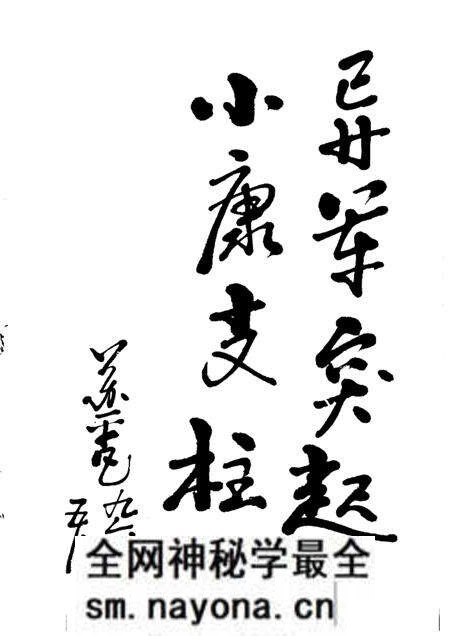 异军突起
小康支柱
全网神秘学最全
sm.nayona.cn